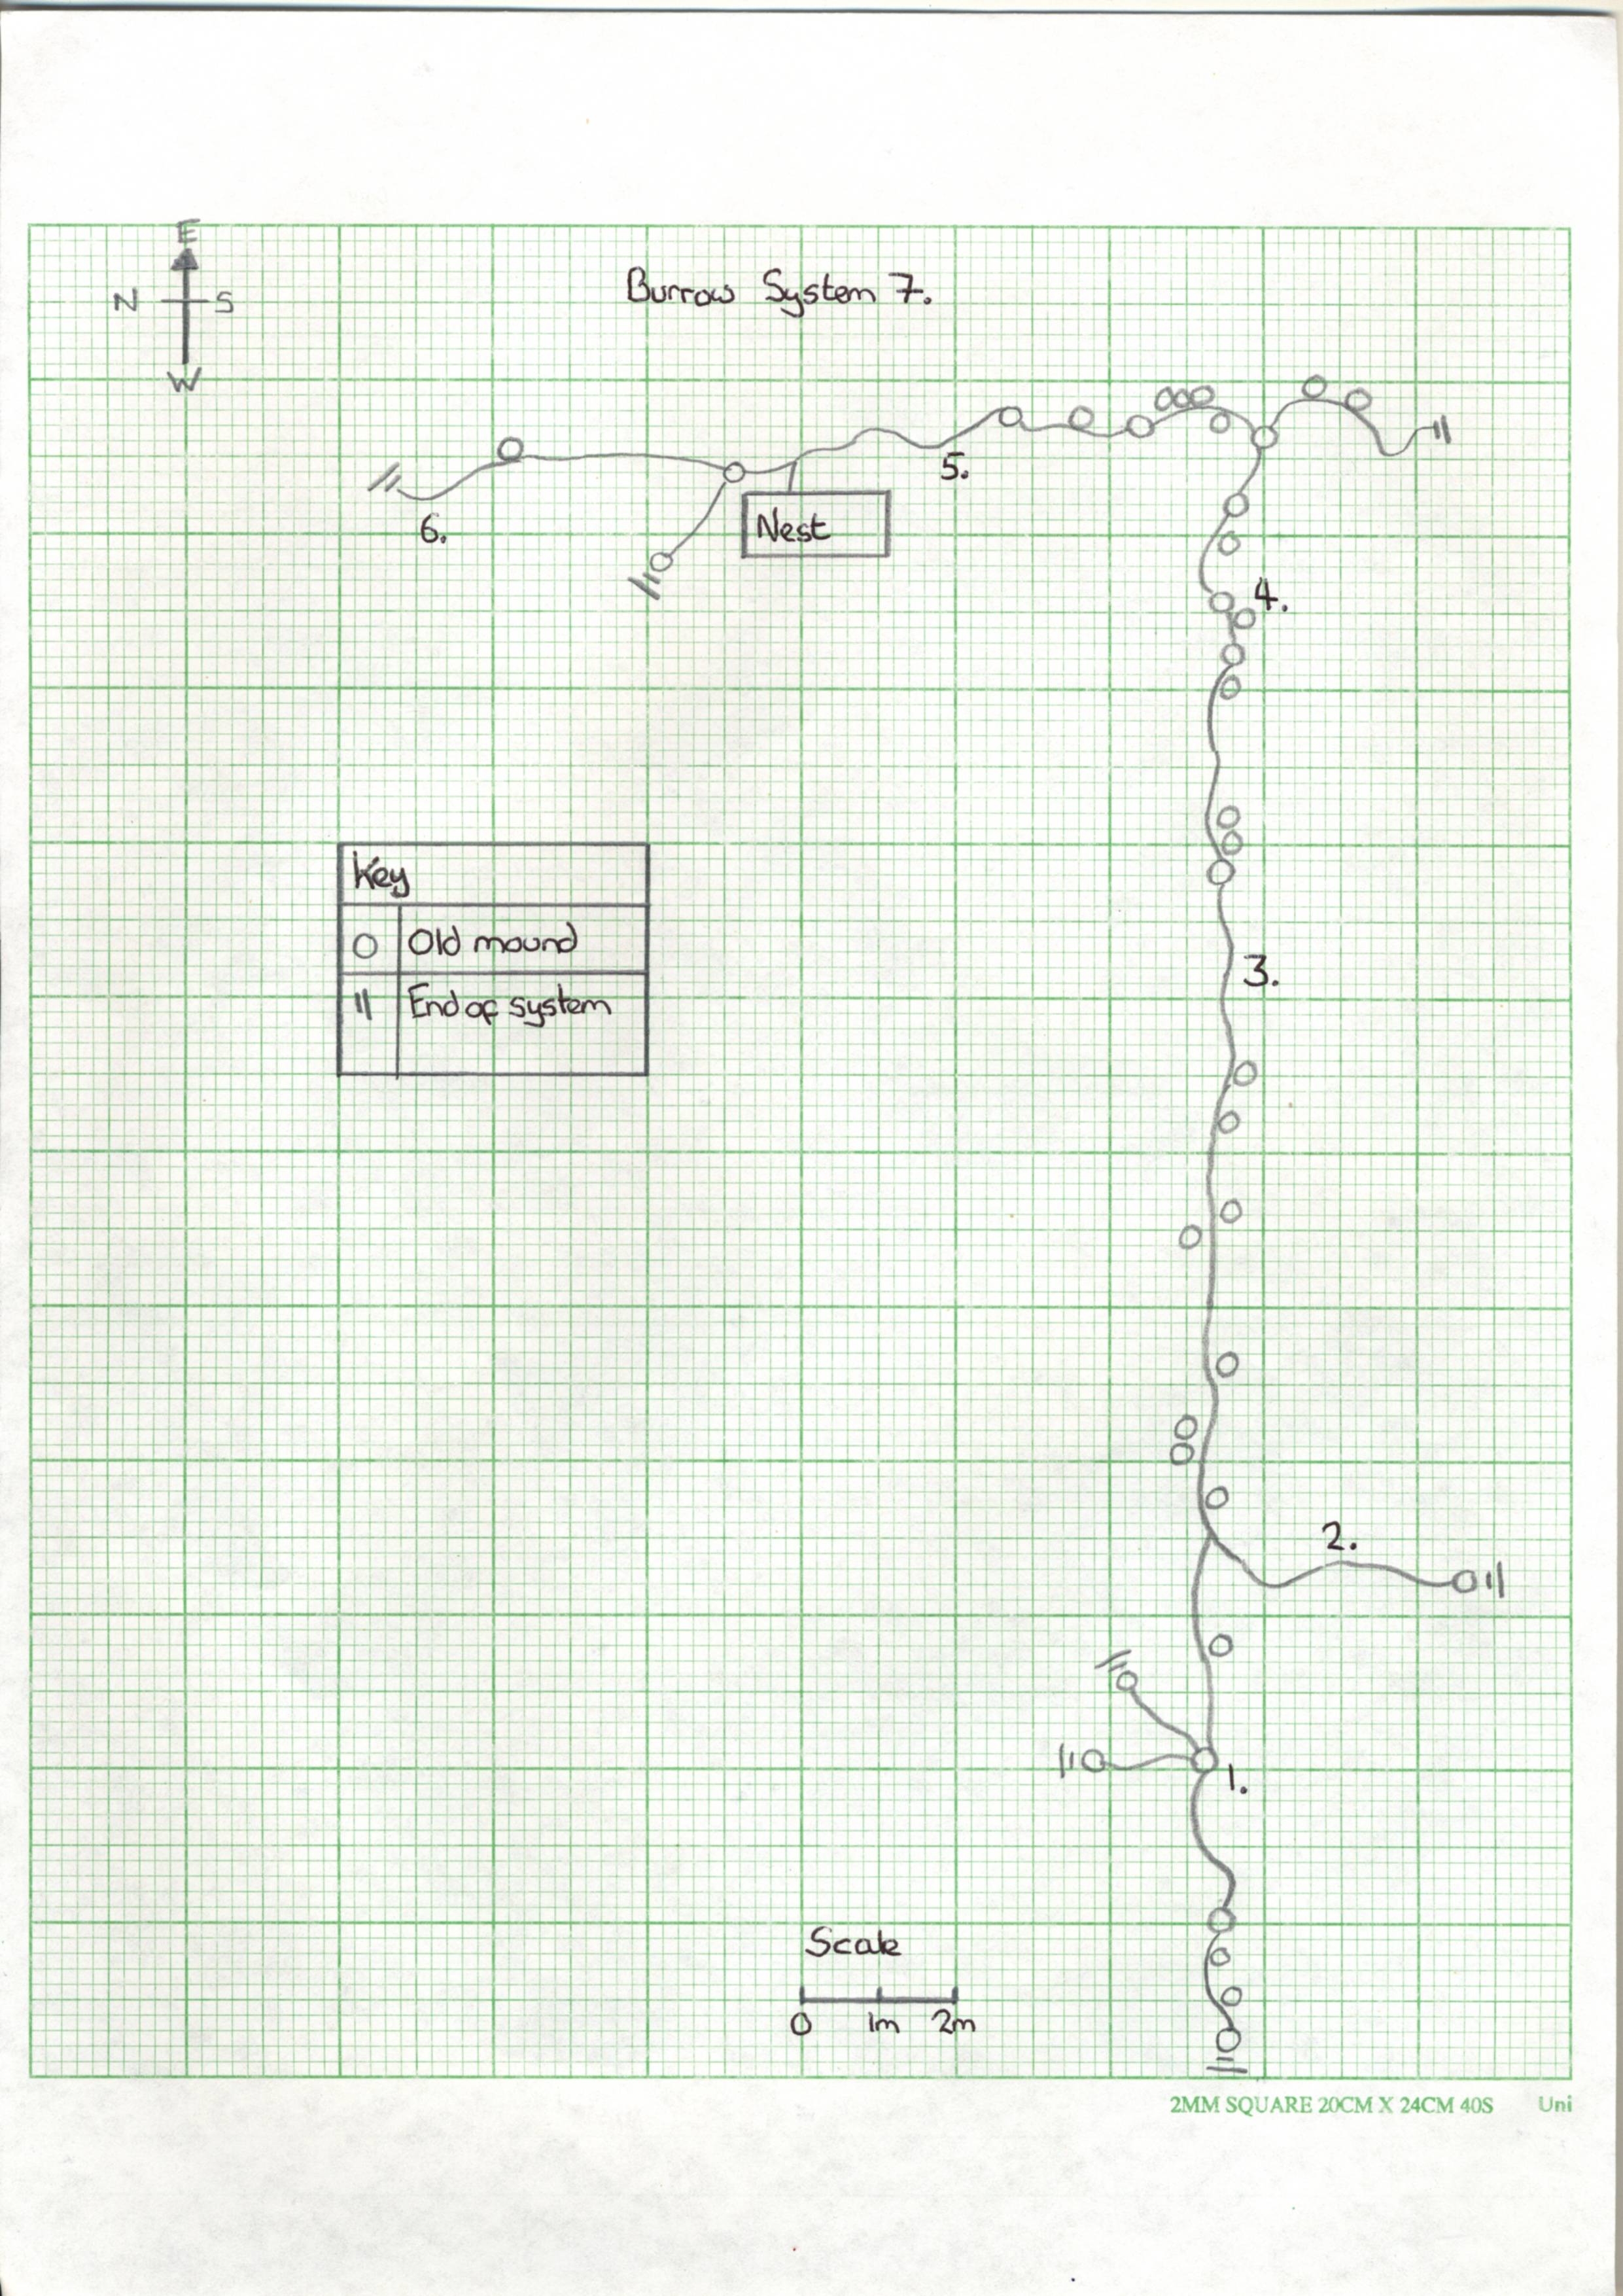 E
N S
W
Burrow System 7.
5.
6.
Nest
4.
Key
O Old mound
|| End of system
3.
2.
1.
Scale
0 1m 2m
2MM SQUARE 20CM X 24CM 40S Uni